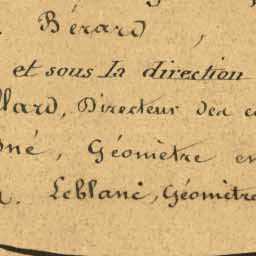 Bérard,
et sous la direction
llard, Directeur des
né, Géomètre en
Leblanc, Géomètre